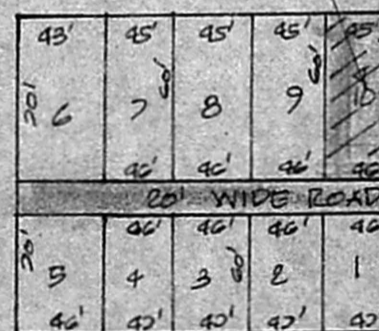 43' 45' 45' 45' 45'
20' 6 7 60' 8 9 60'
46' 46' 46' 46'
20' WIDE ROAD
46' 46' 46' 46
20' 5 4 3 60' 2 1
46' 42' 42' 42' 42